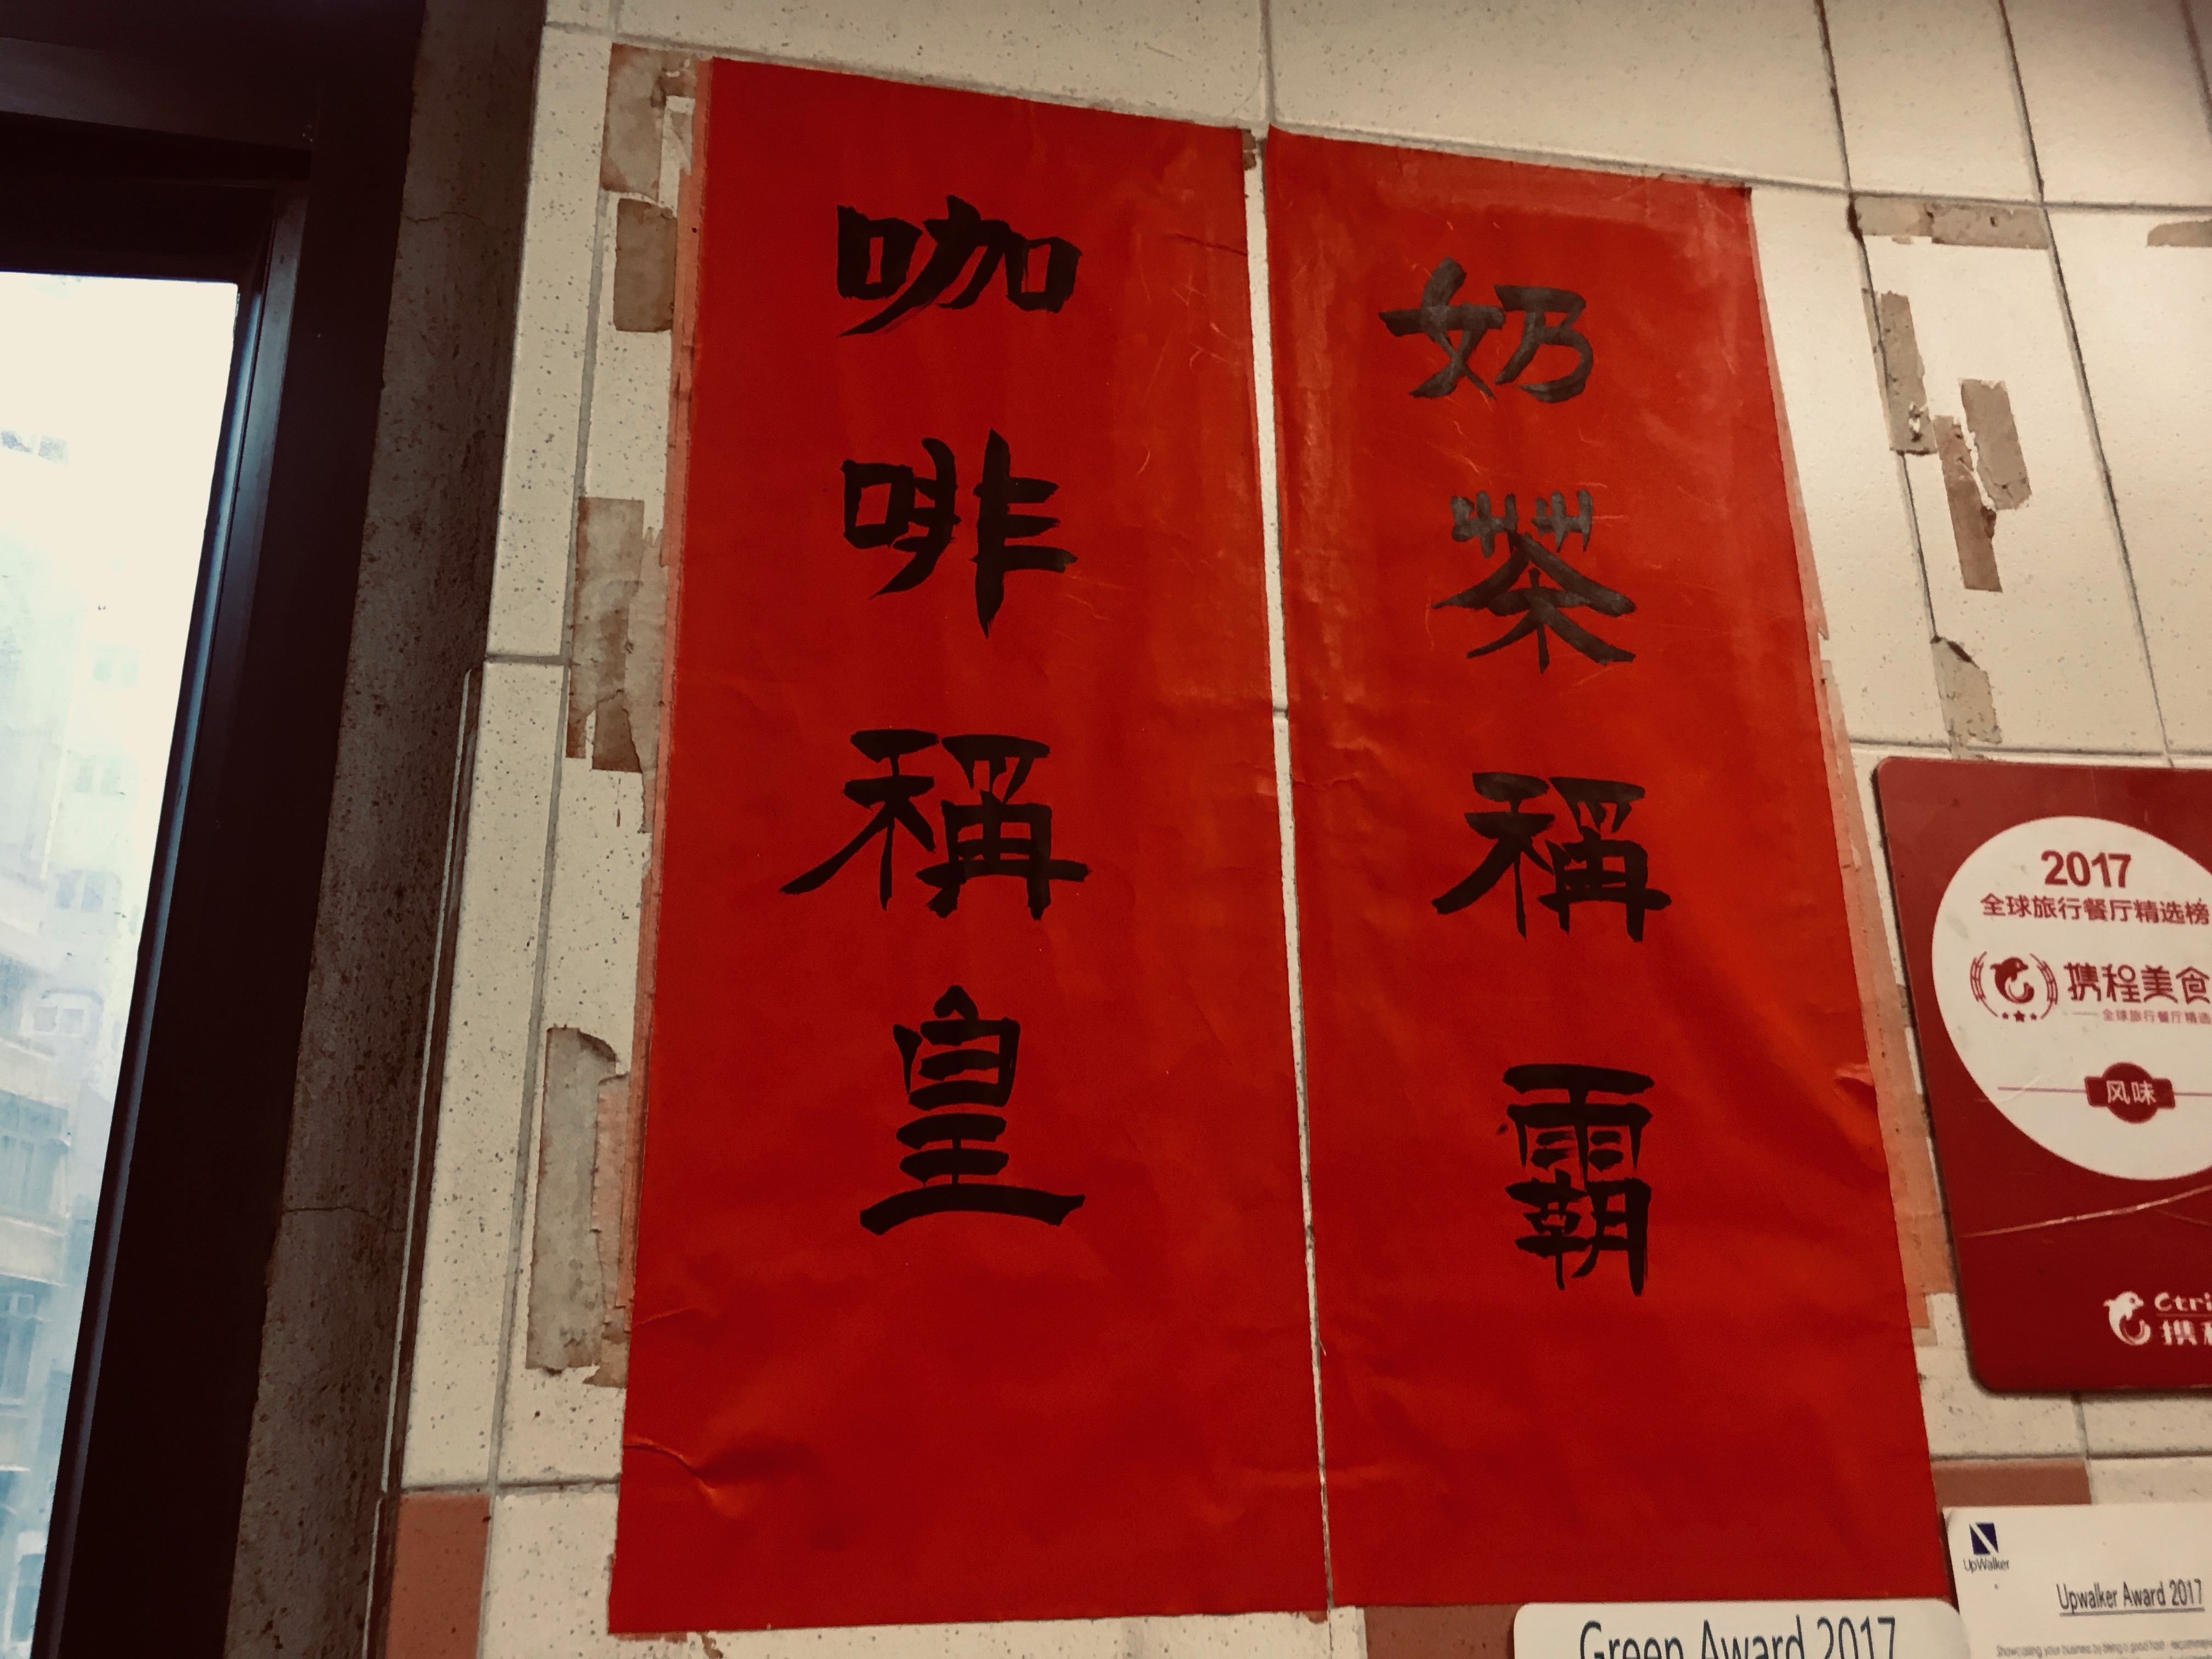 奶茶稱霸
咖啡稱皇
2017
全球旅行餐厅精选榜
携程美食
全球旅行餐厅精选
风味
Ctri
携程
UpWalker
Upwalker Award 2017
Green Award 2017